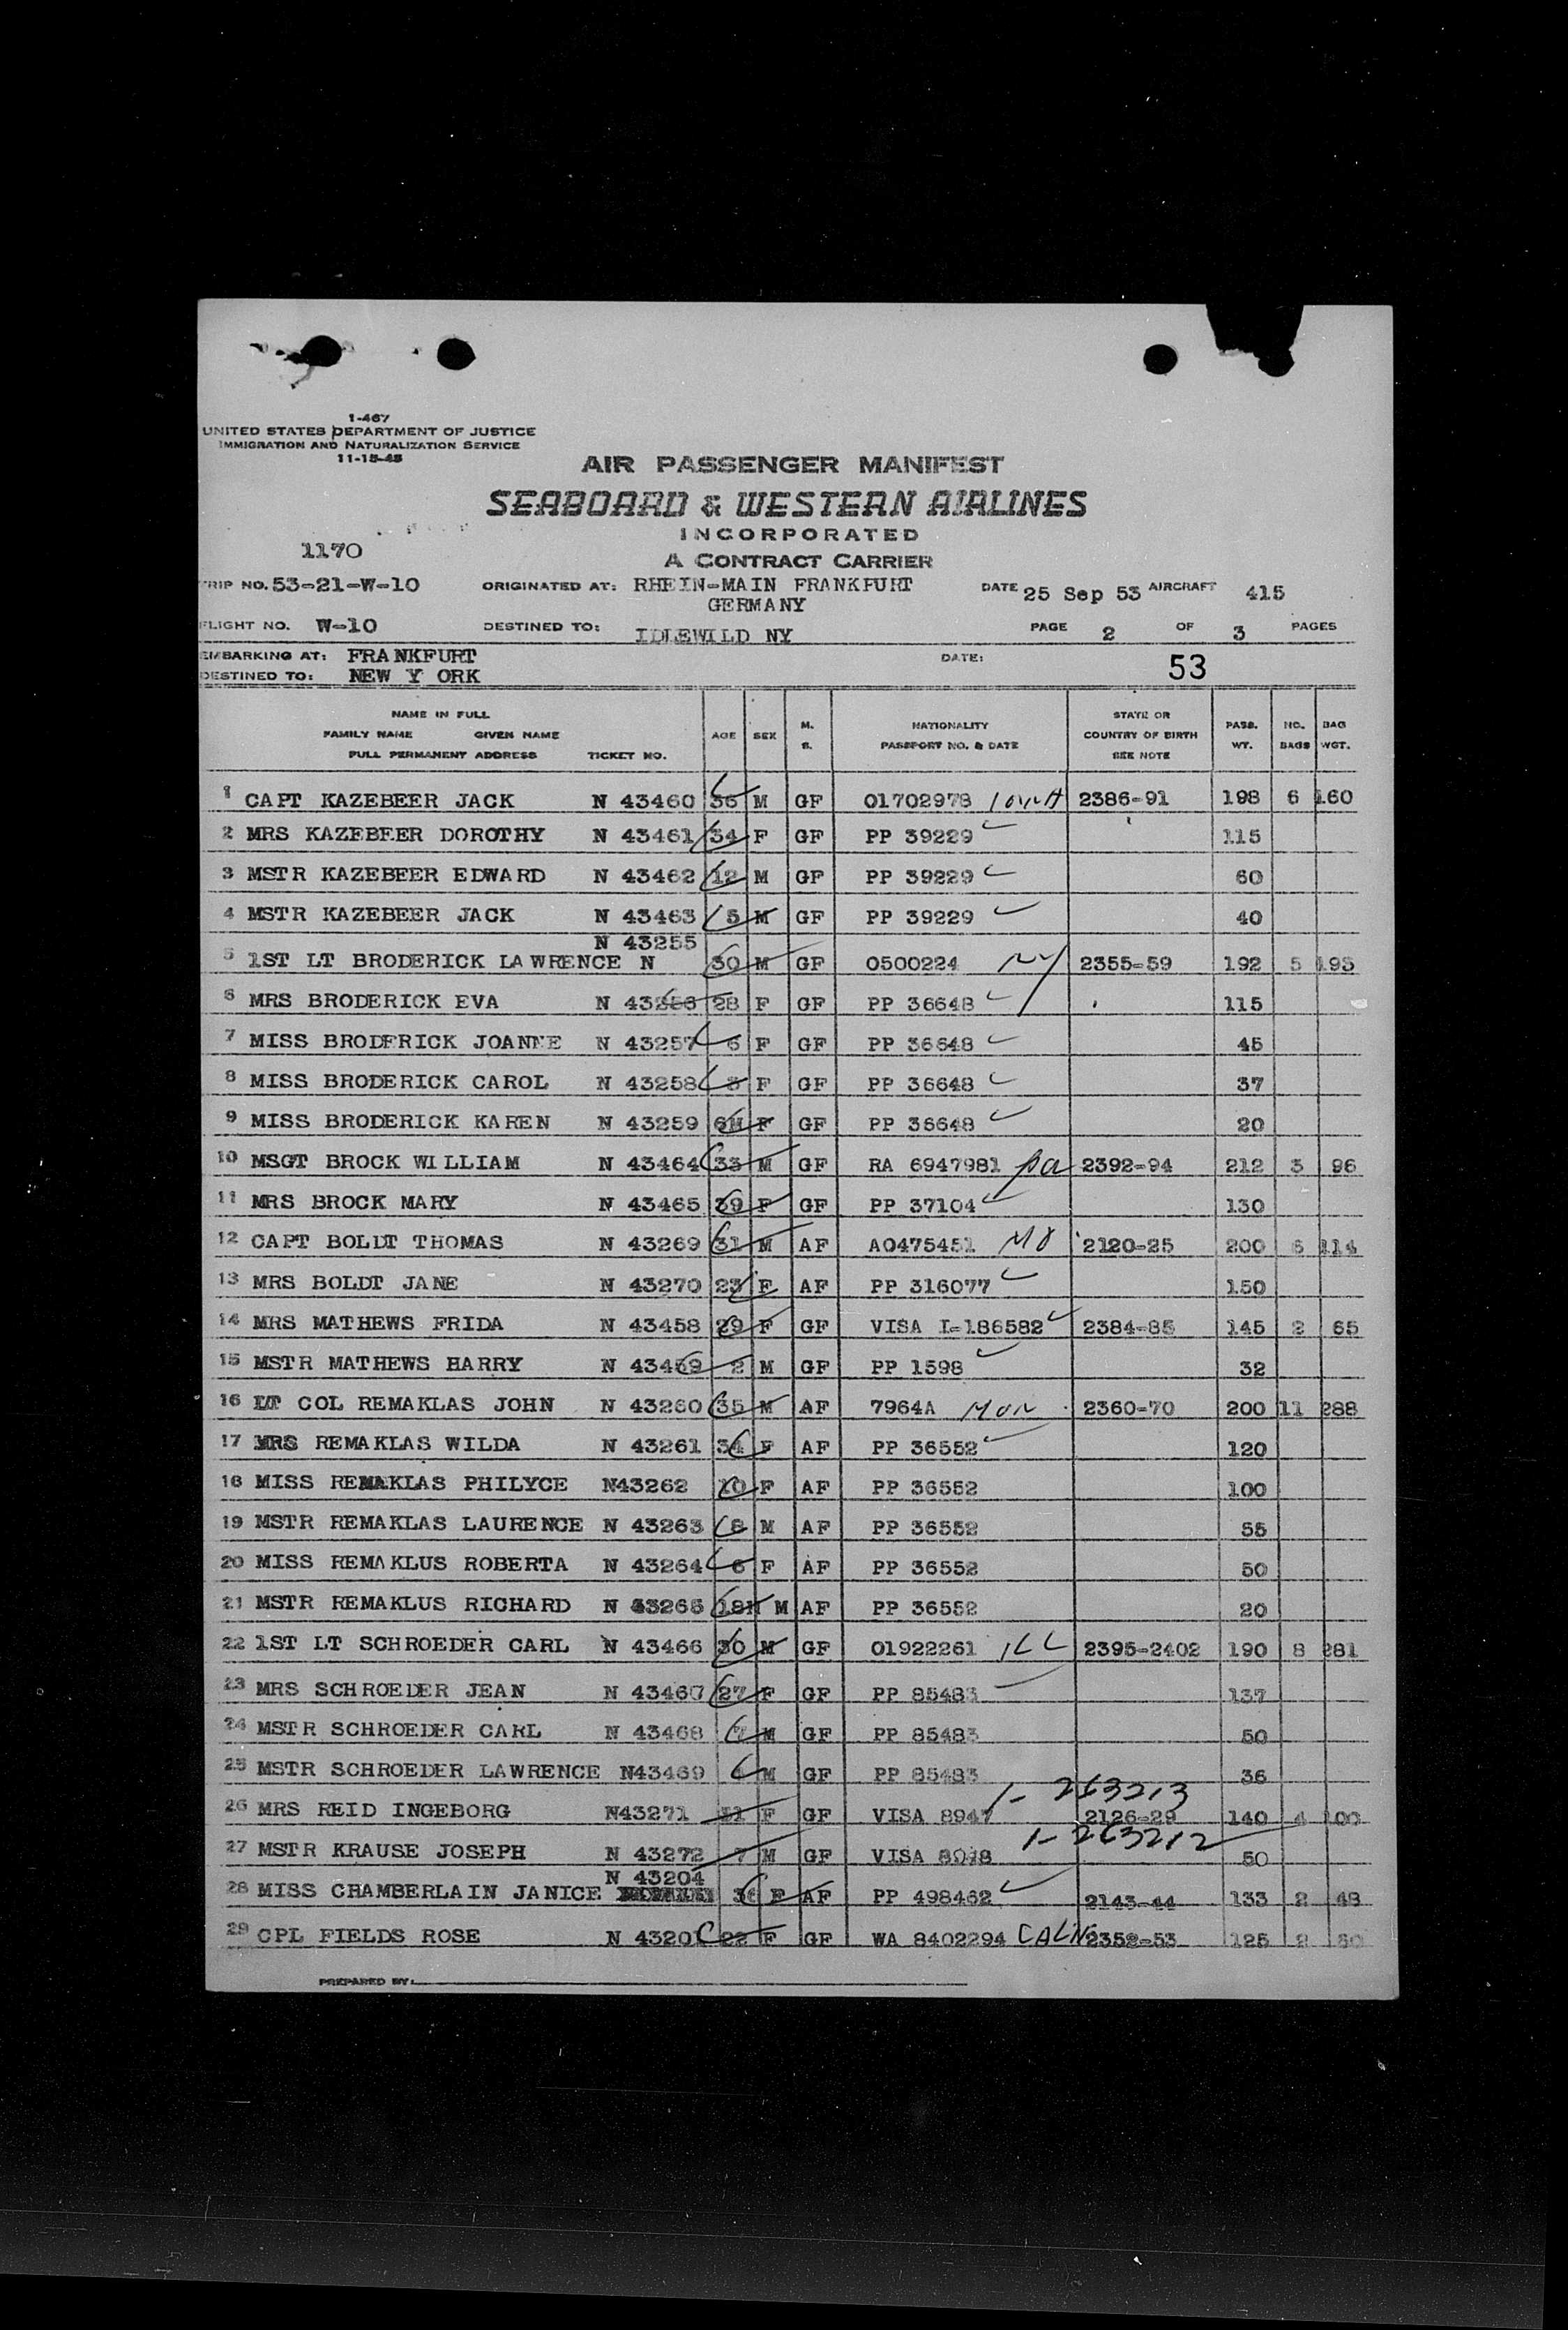 1-467
UNITED STATES DEPARTMENT OF JUSTICE
IMMIGRATION AND NATURALIZATION SERVICE
11-15-45
AIR PASSENGER MANIFEST
SEABOARD & WESTERN AIRLINES
INCORPORATED
A CONTRACT CARRIER
1170
TRIP NO. 53-21-W-10 ORIGINATED AT: RHEIN-MAIN FRANKFURT GERMANY DATE 25 Sep 53 AIRCRAFT 415
FLIGHT NO. W-10 DESTINED TO: IDLEWILD NY PAGE 2 OF 3 PAGES
EMBARKING AT: FRANKFURT DATE: 53
DESTINED TO: NEW Y ORK
NAME IN FULL
FAMILY NAME GIVEN NAME
FULL PERMANENT ADDRESS TICKET NO. AGE SEX M. S. NATIONALITY PASSPORT NO. & DATE STATE OR COUNTRY OF BIRTH SEE NOTE PASS. WT. NO. BAGS BAG WGT.
1 CAPT KAZEBEER JACK N 43460 36 M GF 01702978 IOWA 2386-91 198 6 160
2 MRS KAZEBEER DOROTHY N 43461 34 F GF PP 39229 115
3 MSTR KAZEBEER EDWARD N 43462 12 M GF PP 39229 60
4 MSTR KAZEBEER JACK N 43463 5 M GF PP 39229 40
N 43255
5 1ST LT BRODERICK LAWRENCE N 30 M GF 0500224 NY 2355-59 192 5 193
6 MRS BRODERICK EVA N 43256 28 F GF PP 36648 115
7 MISS BRODERICK JOANNE N 43257 6 F GF PP 36648 45
8 MISS BRODERICK CAROL N 43258 3 F GF PP 36648 37
9 MISS BRODERICK KAREN N 43259 6M F GF PP 36648 20
10 MSGT BROCK WILLIAM N 43464 33 M GF RA 6947981 Pa 2392-94 212 3 96
11 MRS BROCK MARY N 43465 39 F GF PP 37104 130
12 CAPT BOLDT THOMAS N 43269 31 M AF AO475451 MO 2120-25 200 6 114
13 MRS BOLDT JANE N 43270 23 F AF PP 316077 150
14 MRS MATHEWS FRIDA N 43458 29 F GF VISA I-186582 2384-85 145 2 65
15 MSTR MATHEWS HARRY N 43459 2 M GF PP 1598 32
16 LT COL REMAKLAS JOHN N 43260 35 M AF 7964A MON 2360-70 200 11 288
17 MRS REMAKLAS WILDA N 43261 34 F AF PP 36552 120
18 MISS REMAKLAS PHILYCE N43262 10 F AF PP 36552 100
19 MSTR REMAKLAS LAURENCE N 43263 8 M AF PP 36552 55
20 MISS REMAKLUS ROBERTA N 43264 6 F AF PP 36552 50
21 MSTR REMAKLUS RICHARD N 43265 18M M AF PP 36552 20
22 1ST LT SCHROEDER CARL N 43466 30 M GF 01922261 ILL 2395-2402 190 8 281
23 MRS SCHROEDER JEAN N 43467 27 F GF PP 85483 137
24 MSTR SCHROEDER CARL N 43468 7 M GF PP 85483 50
25 MSTR SCHROEDER LAWRENCE N43469 M GF PP 85483 36
1- 263213
26 MRS REID INGEBORG N43271 31 F GF VISA 8947 2126-29 140 4 100
1- 263212
27 MSTR KRAUSE JOSEPH N 43272 7 M GF VISA 50
N 43204
28 MISS CHAMBERLAIN JANICE 36 F AF PP 498462 2143-44 133 2 48
29 CPL FIELDS ROSE N 4320 22 F GF WA 8402294 CALIF 2352-53 125 2 50
PREPARED BY: